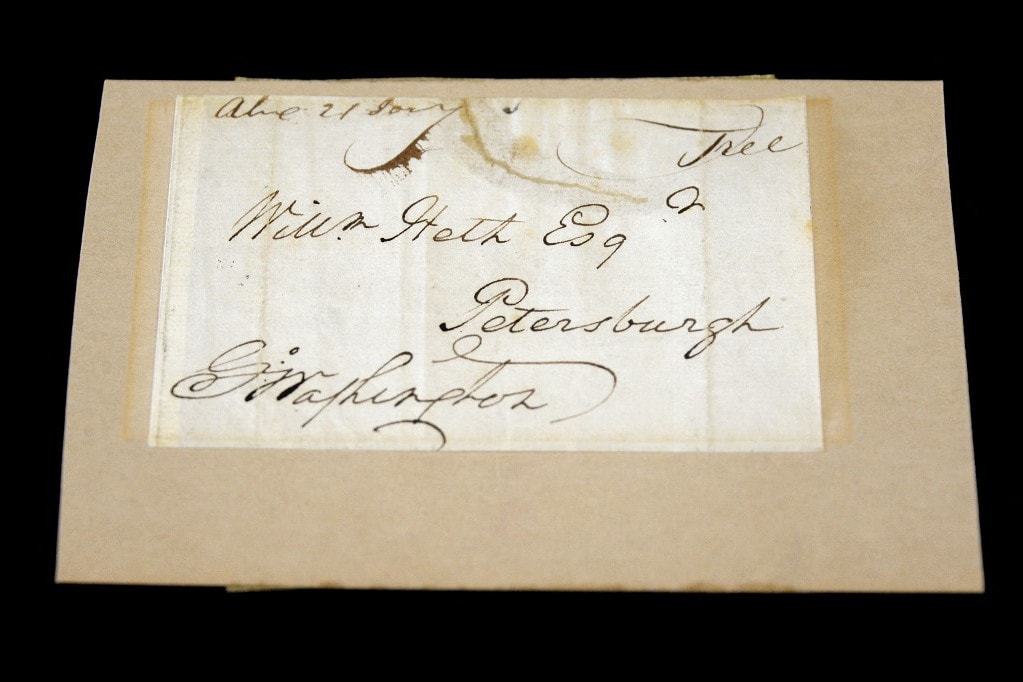 21 Jany Free
Willm Heth Esqr
Petersburgh
Go Washington